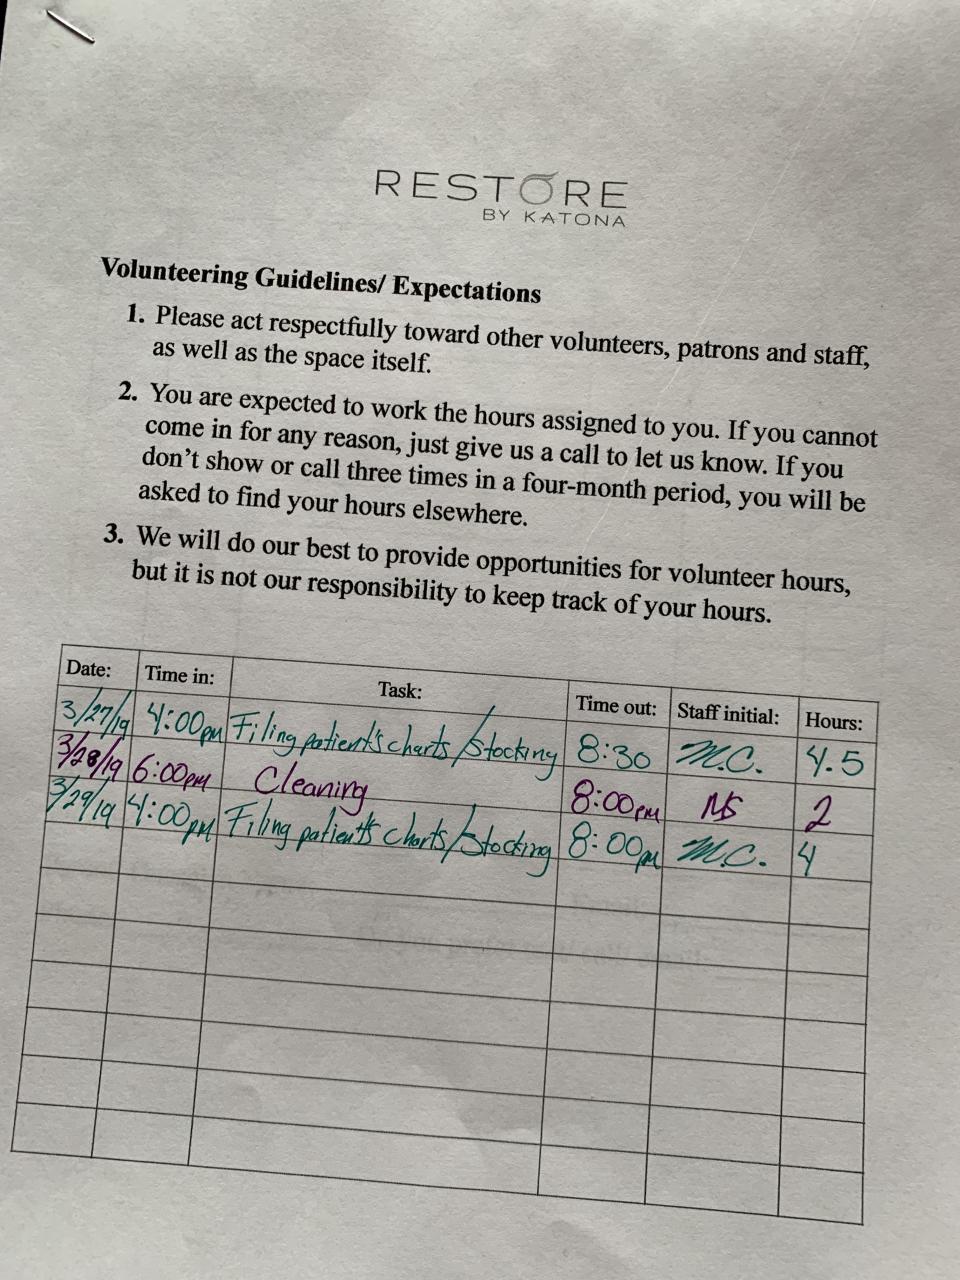 RESTORE
BY KATONA
Volunteering Guidelines/ Expectations
1. Please act respectfully toward other volunteers, patrons and staff,
as well as the space itself.
2. You are expected to work the hours assigned to you. If you cannot
come in for any reason, just give us a call to let us know. If you
don't show or call three times in a four-month period, you will be
asked to find your hours elsewhere.
3. We will do our best to provide opportunities for volunteer hours,
but it is not our responsibility to keep track of your hours.
Date: Time in: Task: Time out: Staff initial: Hours:
3/27/19 4:00pm Filing patient's charts/Stocking 8:30 M.C. 4.5
3/28/19 6:00pm Cleaning 8:00pm NS 2
3/29/19 4:00pm Filing patient's charts/Stocking 8:00pm M.C. 4